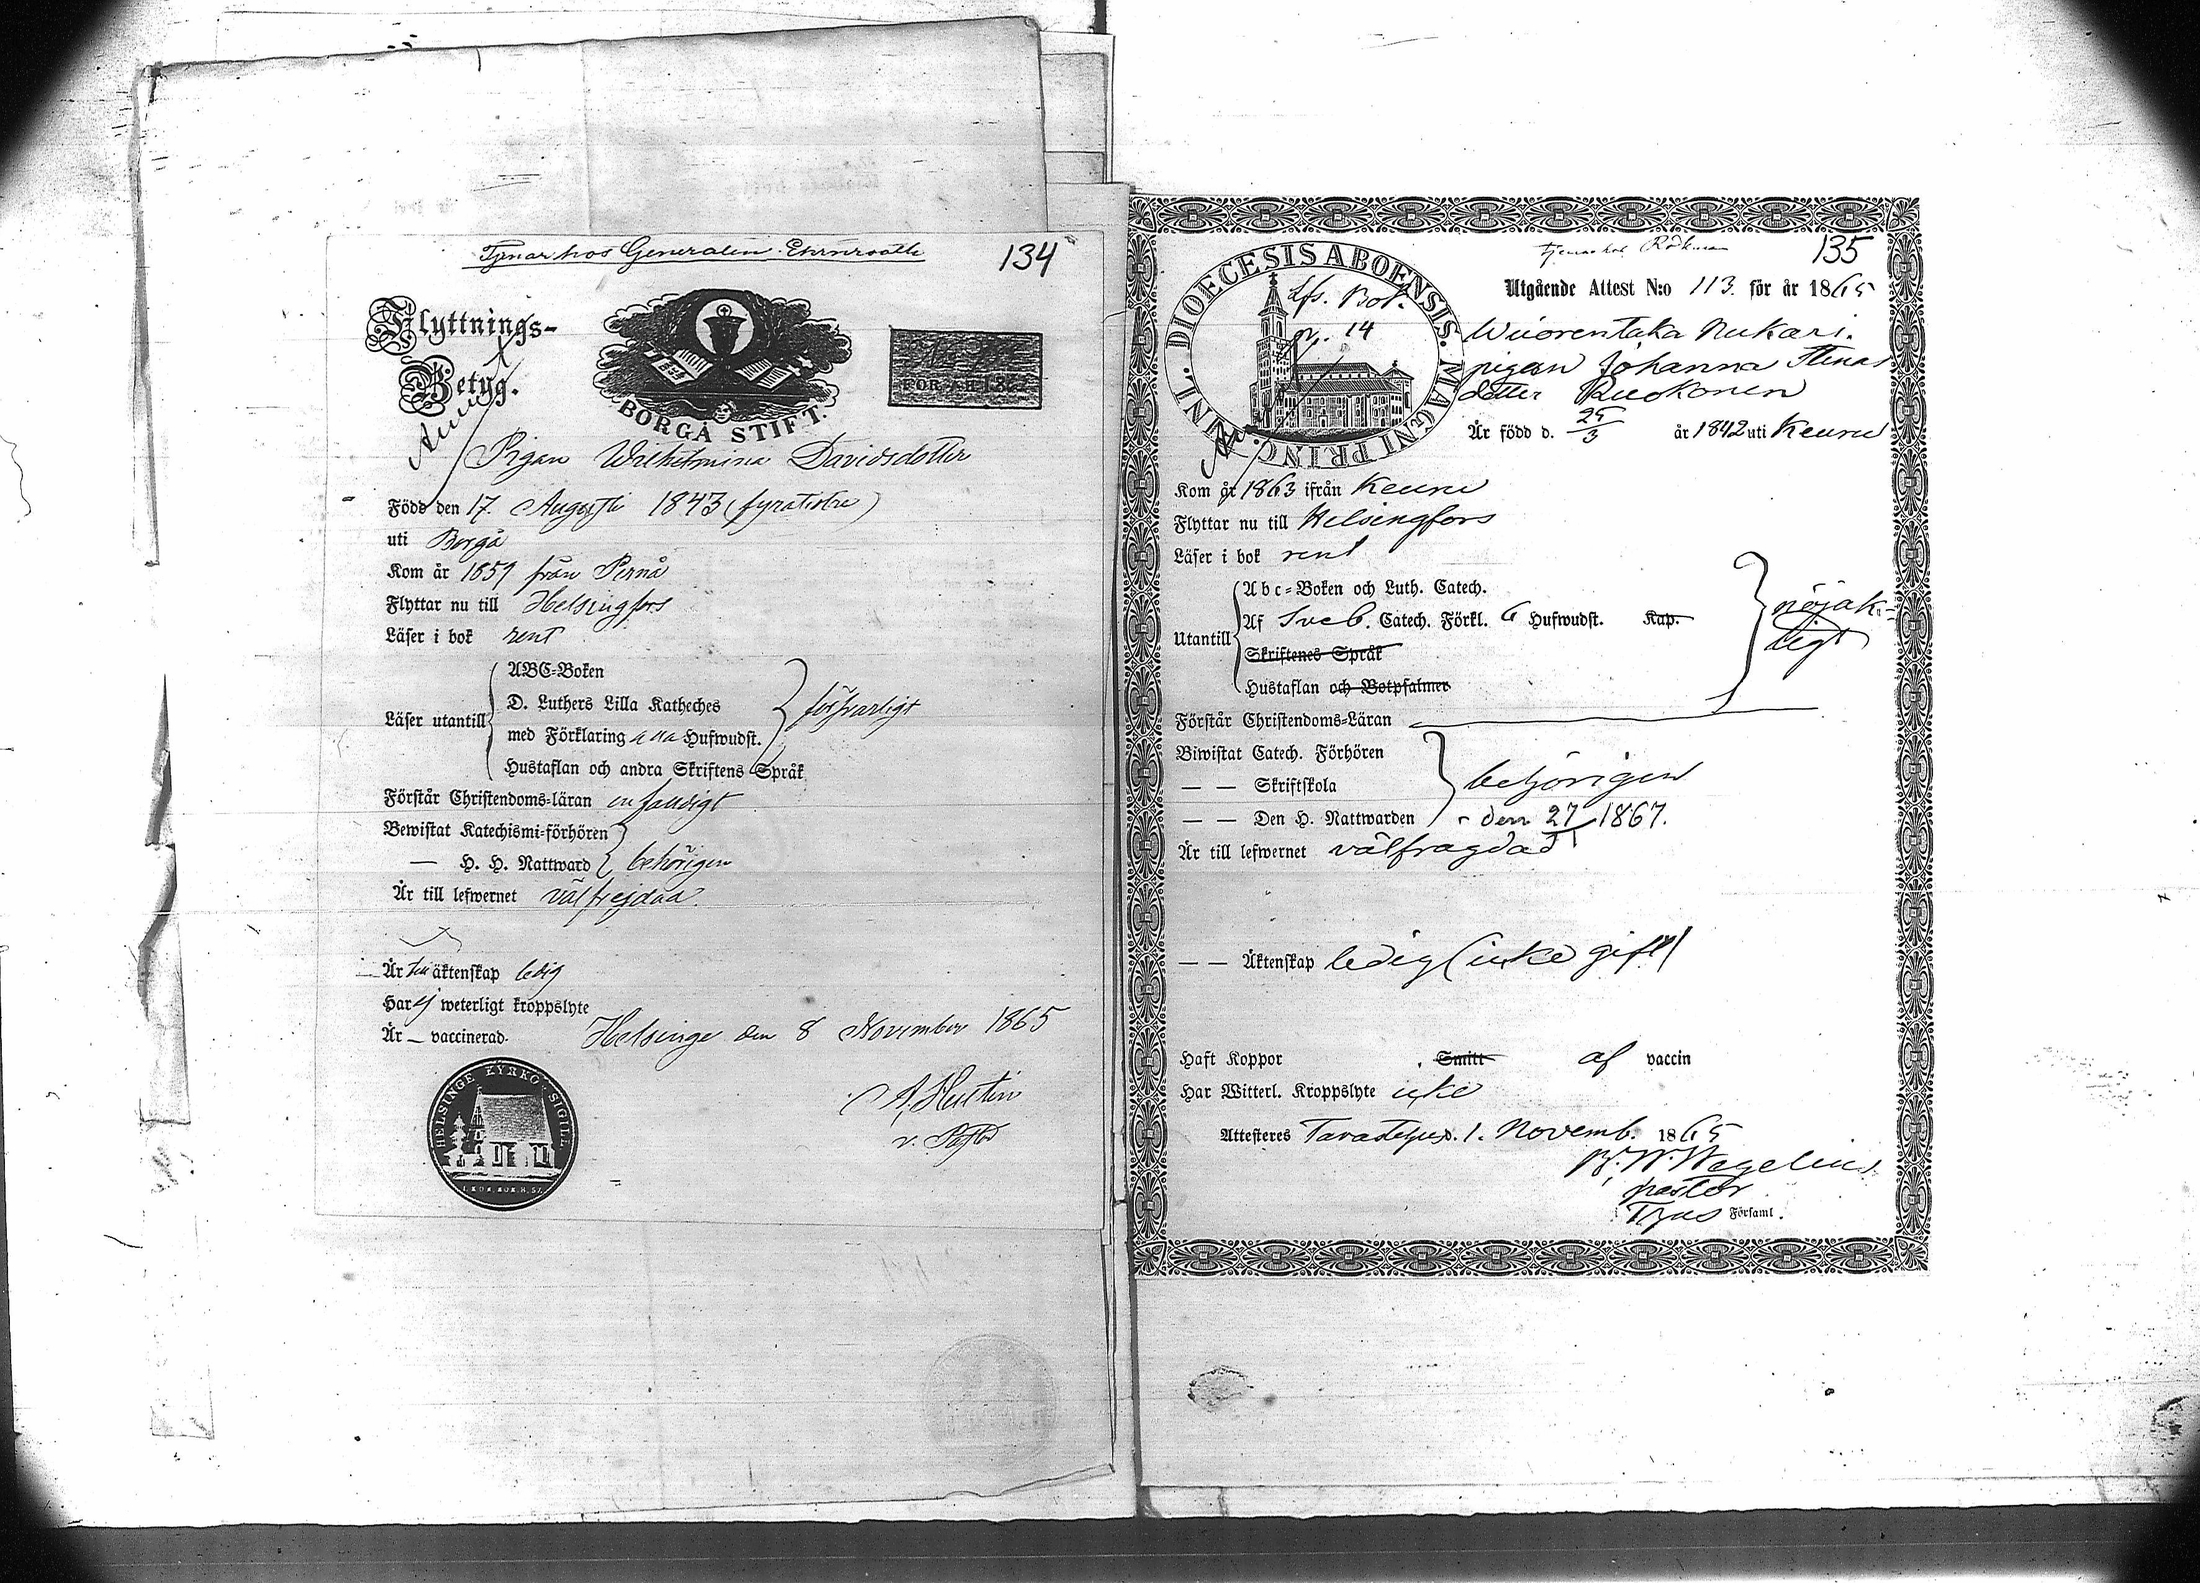 Tjenar hos Generalen Ehrnrooth
134
Flyttnings-
Betyg.
BORGÅ STIFT.
FÖR ÅR 18
Pigan Wilhelmina Davidsdotter
Född den 17 Augusti 1843 (fyratiotre)
uti Borgå
Kom år 1859 från Pernå
Flyttar nu till Helsingfors
Läser i bok rent
ABC-Boken
D. Luthers Lilla Katheches
Läser utantill
med Förklaring Hufwudst.
försvarligt
Hustaflan och andra Skriftens Språk
Förstår Christendoms-läran enfaldigt
Bewistat Katechismi-förhören
— H. H. Nattward behörigen
Är till lefwernet välfrejdad.
Är till äktenskap ledig
Har ej weterligt kroppslyte
Är — vaccinerad.
Helsinge den 8 November 1865
HELSINGE KYRKO SIGILL
v. Pastor
135
DIOECESIS ABOENSIS. MAGNI PRINC. FINL.
Bok.
14
Utgående Attest N:o 113. för år 1865
Wuorentaka Nukari.
pigan Johanna Stinas
dotter Ruokonen
Är född d. 25/3 år 1842 uti Keuru
Kom år 1863 ifrån Keuru
Flyttar nu till Helsingfors
Läser i bok rent
Abc-Boken och Luth. Catech.
Utantill
Af Sveb. Catech. Förkl. 6 Hufwudst. Kap.
Skriftenes Språk
Hustaflan och Botpsalmer
nöjak-
ligt
Förstår Christendoms-Läran
Biwistat Catech. Förhören
— — Skriftskola
behörigen
— — Den H. Nattwarden den 27 1867.
Är till lefwernet välfragdad
— — Äktenskap ledig (icke gift)
Haft Koppor Smitt af vaccin
Har Witterl. Kroppslyte icke
Attesteres Tavastehus d. 1. Novemb. 1865
Wegelius
pastor
Församl.